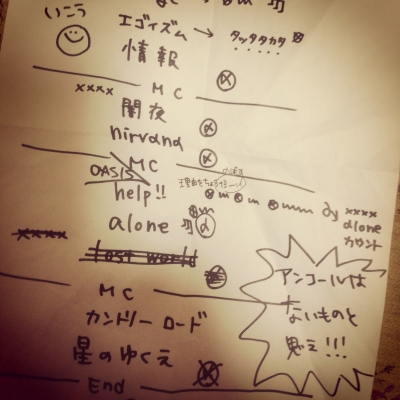 いこう
エゴイズム → タッタタカタ
情報
xxxx MC
闇夜
nirvana
MC
OASIS
help!!
alone
by xxxx
alone
カウント
xxxx
lost world
MC
カントリーロード
星のゆくえ
End
アンコールは
ないものと
思え!!!